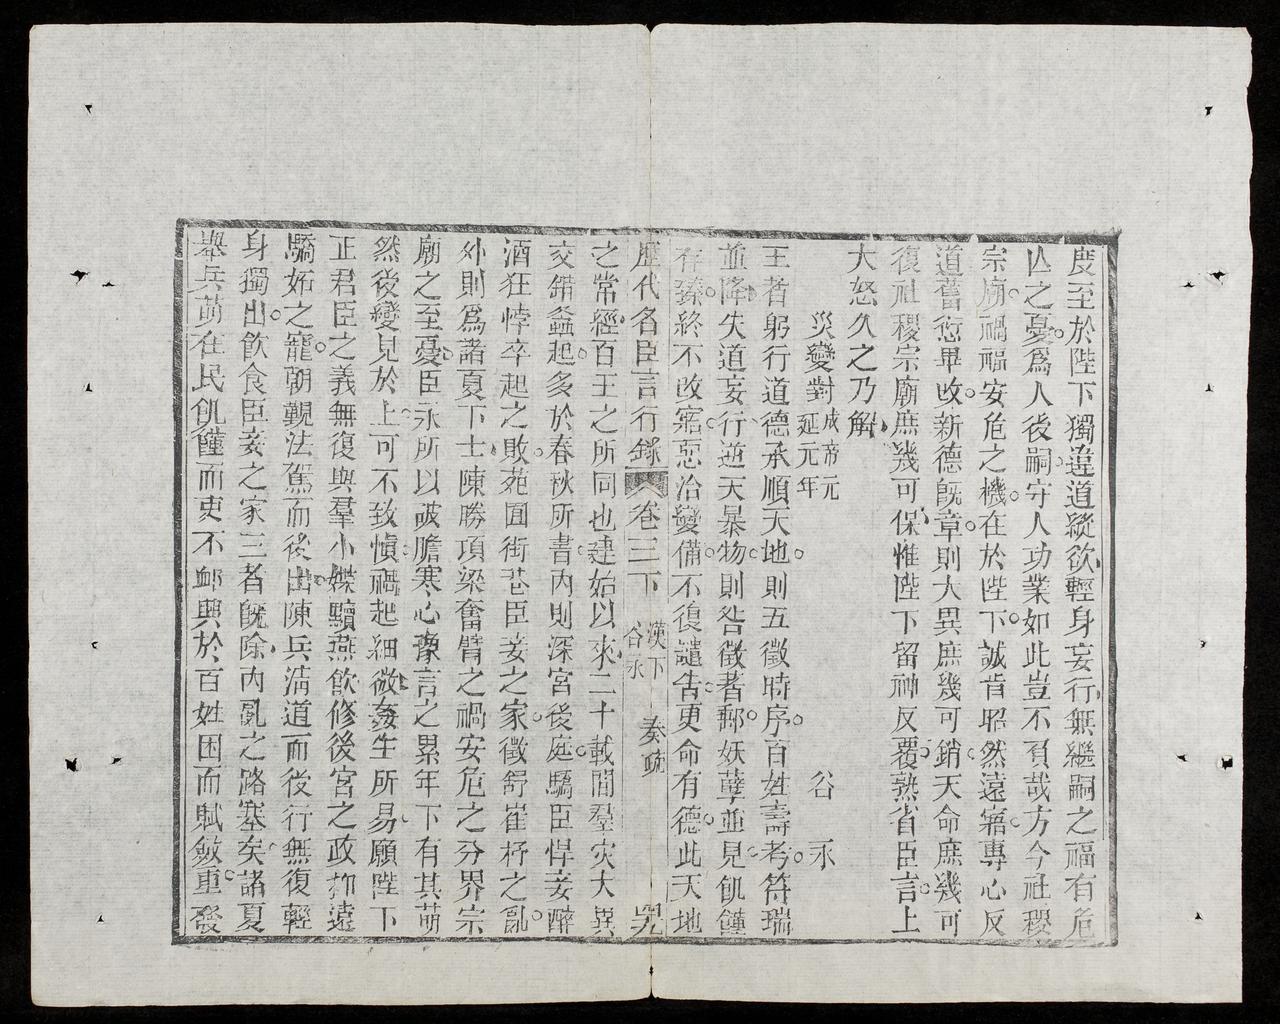 度至於陛下獨違道縱欲輕身妄行無繼嗣之福有危
亾之憂爲人後嗣守人功業如此豈不負哉方今社稷
宗廟禍福安危之機在於陛下誠肯昭然遠寤專心反
道舊愆畢改新德旣章則大異庶幾可銷天命庶幾可
復社稷宗廟庶幾可保惟陛下留神反覆熟省臣言上
大怒久之乃解
災變對成帝元延元年 谷永
王者躬行道德承順天地則五徵時序百姓壽考符瑞
並降失道妄行逆天暴物則咎徵著郵妖孽並見飢饉
存臻終不改寤惡洽變備不復譴告更命有德此天地
歷代名臣言行錄 卷三下 漢下 谷永 奏疏 四九
之常經百王之所同也建始以來二十載間羣灾大異
交錯蠭起多於春秋所書內則深宮後庭驕臣悍妾醉
酒狂悖卒起之敗苑囿街巷臣妾之家徵舒崔杼之亂
外則爲諸夏下士陳勝項梁奮臂之禍安危之分界宗
廟之至憂臣永所以破膽寒心豫言之累年下有其萌
然後變見於上可不致愼禍起細微姦生所易願陛下
正君臣之義無復與羣小媟黷燕飮修後宮之政抑遠
驕妬之寵朝覲法駕而後出陳兵淸道而後行無復輕
身獨出飮食臣妾之家三者旣除內亂之路塞矣諸夏
舉兵萌在民飢饉而吏不卹興於百姓困而賦斂重發